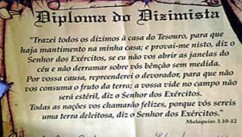 Diploma do Dizimista
"Trazei todos os dízimos à casa do Tesouro, para que
haja mantimento na minha casa; e provai-me nisto, diz o
Senhor dos Exércitos, se eu não vos abrir as janelas do
céu e não derramar sobre vós bênção sem medida.
Por vossa causa, repreenderei o devorador, para que não
vos consuma o fruto da terra; a vossa vide no campo não
será estéril, diz o Senhor dos Exércitos.
Todas as nações vos chamarão felizes, porque vós sereis
uma terra deleitosa, diz o Senhor dos Exércitos."
Malaquias 3.10-12